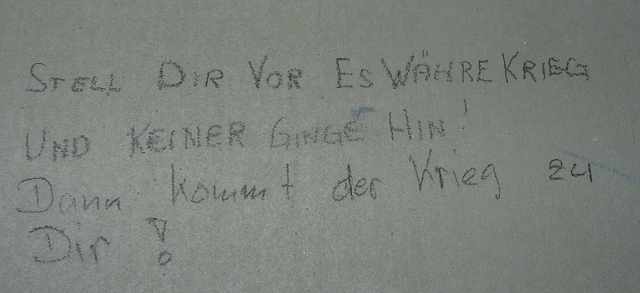 STELL DIR VOR ES WÄHRE KRIEG
UND KEINER GINGE HIN!
Dann kommt der Krieg zu
Dir!